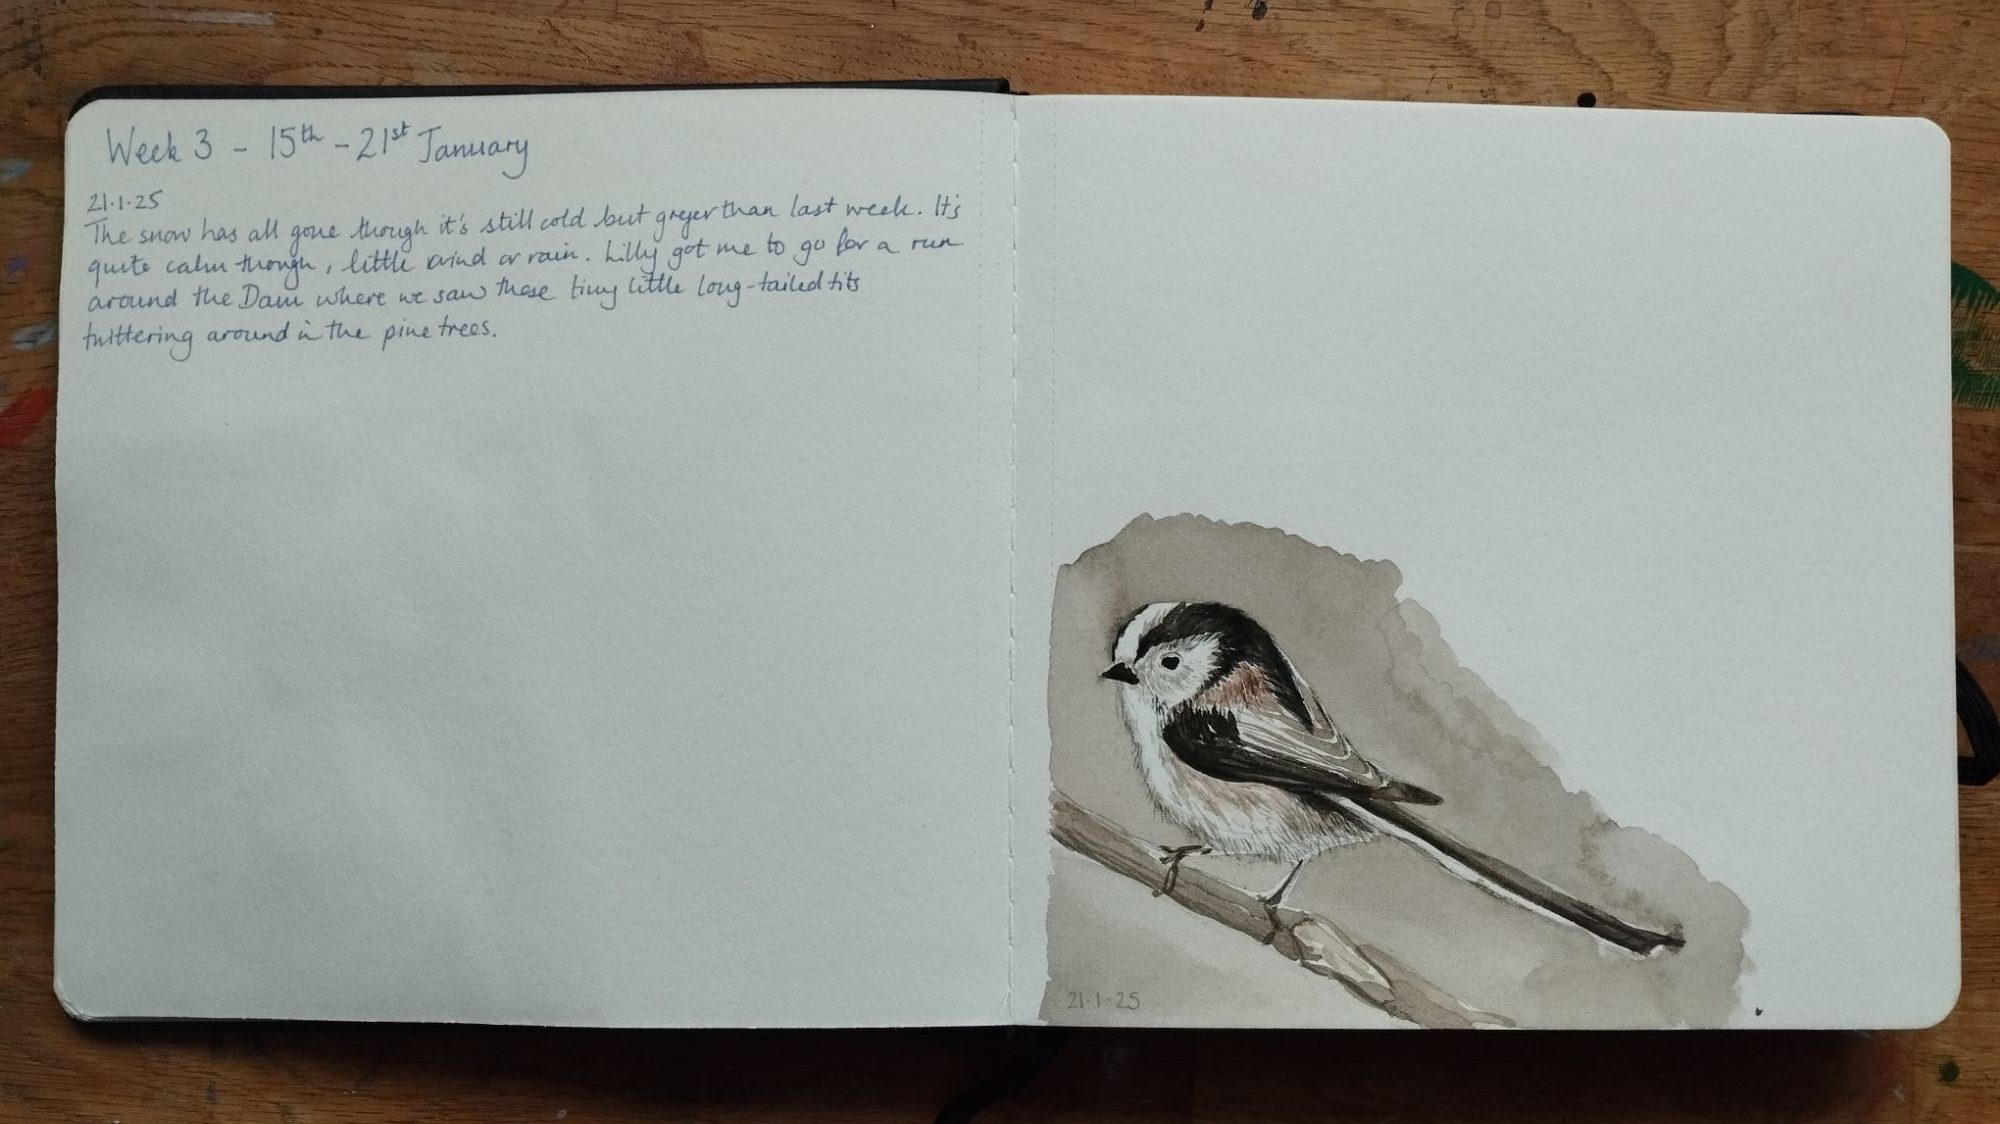 Week 3 - 15th - 21st January
21.1.25
The snow has all gone though it's still cold but greyer than last week. It's
quite calm though, little wind or rain. Lilly got me to go for a run
around the Dam where we saw these tiny little long-tailed tits
twittering around in the pine trees.
21.1.25